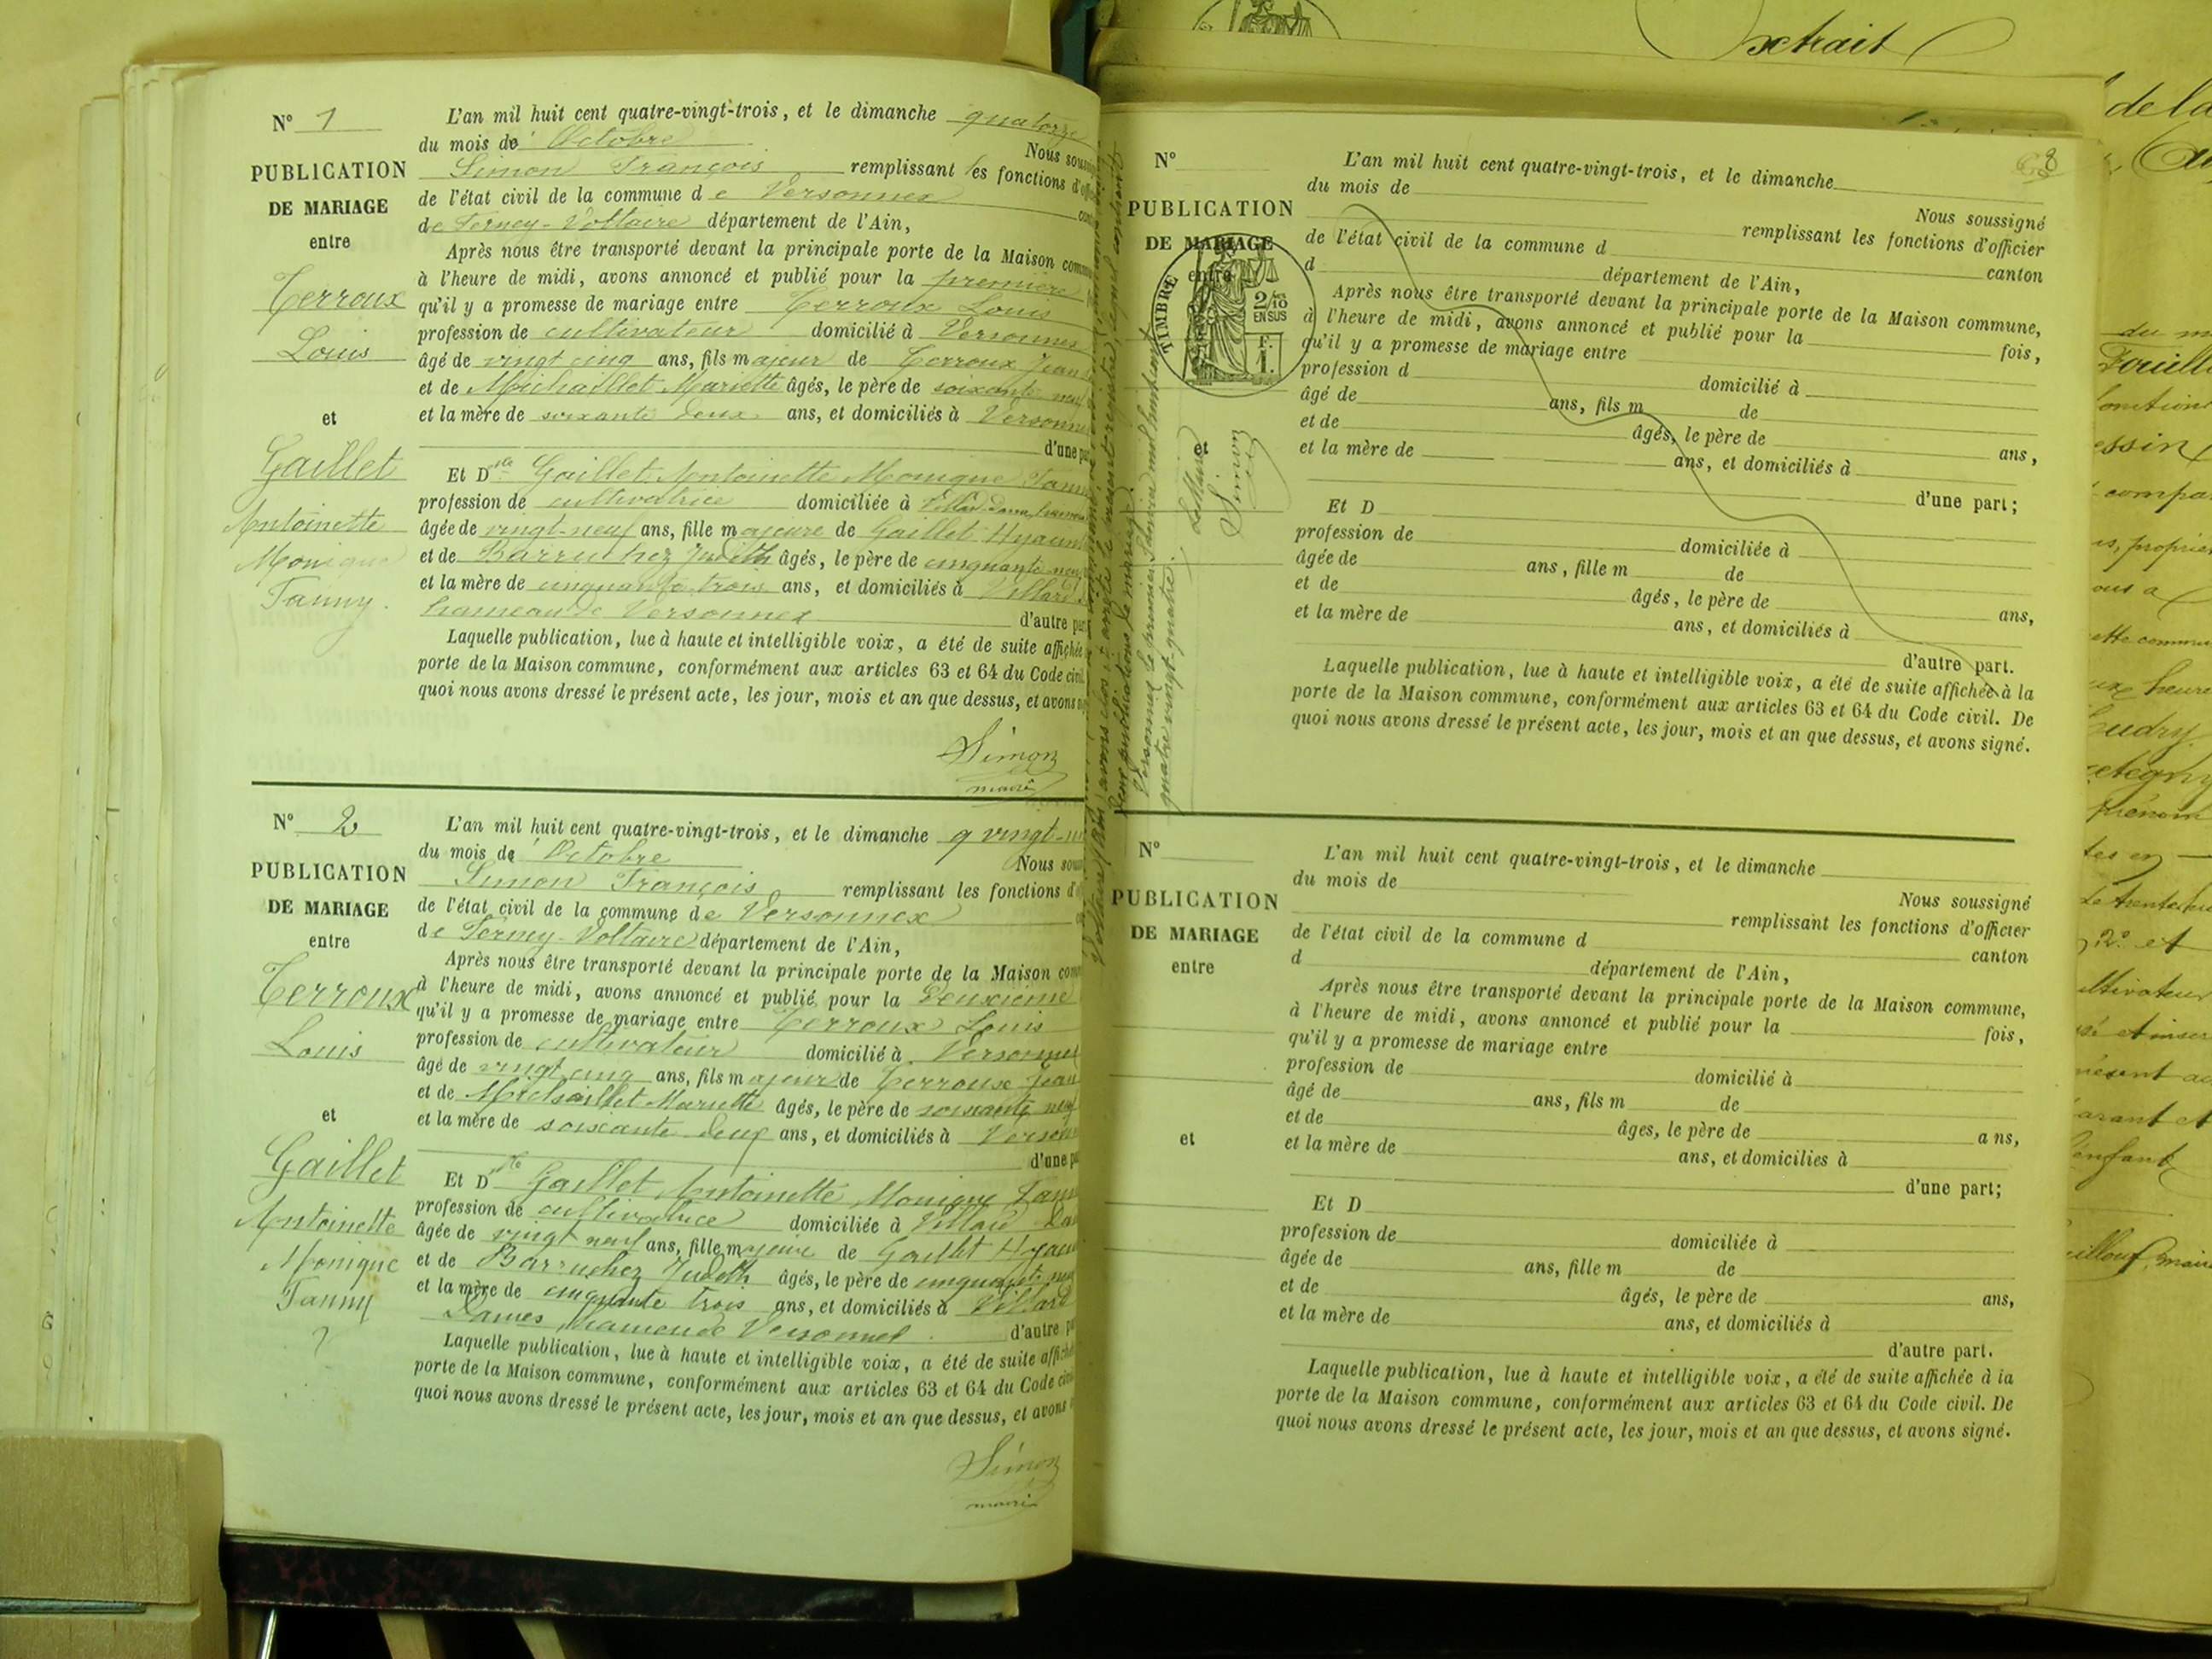 N° 1
PUBLICATION
DE MARIAGE
entre
Terroux
Louis
et
Gaillet
Antoinette
Monique
Fanny.
L'an mil huit cent quatre-vingt-trois, et le dimanche quatorze
du mois de Octobre
Nous sous
Simon François remplissant les fonctions d'offi
de l'état civil de la commune de Versonnex
de Ferney-Voltaire département de l'Ain,
Après nous être transporté devant la principale porte de la Maison comm
à l'heure de midi, avons annoncé et publié pour la première
qu'il y a promesse de mariage entre Terroux Louis
profession de cultivateur domicilié à Versonnex
âgé de vingt cinq ans, fils majeur de Terroux Jean
et de Michaillet Mariette âgés, le père de soixante neuf
et la mère de soixante deux ans, et domiciliés à Versonne
d'une pa
Et Dlle Gaillet Antoinette Monique Fann
profession de cultivatrice domiciliée à Villard-Dame, hameau
âgée de vingt-neuf ans, fille majeure de Gaillet Hyacint
et de Barruchez Judith âgés, le père de cinquante neuf
et la mère de cinquante trois ans, et domiciliés à Villard
hameau de Versonnex d'autre par
Laquelle publication, lue à haute et intelligible voix, a été de suite affichée
porte de la Maison commune, conformément aux articles 63 et 64 du Code civil.
quoi nous avons dressé le présent acte, les jour, mois et an que dessus, et avons
Simon
maire
N° 2
PUBLICATION
DE MARIAGE
entre
Terroux
Louis
et
Gaillet
Antoinette
Monique
Fanny
L'an mil huit cent quatre-vingt-trois, et le dimanche vingt-un
du mois de Octobre
Nous sous
Simon François remplissant les fonctions d'
de l'état civil de la commune de Versonnex
de Ferney-Voltaire département de l'Ain,
Après nous être transporté devant la principale porte de la Maison com
à l'heure de midi, avons annoncé et publié pour la deuxième
qu'il y a promesse de mariage entre Terroux Louis
profession de cultivateur domicilié à Versonnex
âgé de vingt cinq ans, fils majeur de Terroux Jean
et de Michaillet Mariette âgés, le père de soixante neuf
et la mère de soixante deux ans, et domiciliés à Versonn
d'une pa
Et Dlle Gaillet Antoinette Monique Fann
profession de cultivatrice domiciliée à Villard Da
âgée de vingt neuf ans, fille majeure de Gaillet Hyacin
et de Barruchez Judith âgés, le père de cinquante neuf
et la mère de cinquante trois ans, et domiciliés à Villard
Dames, hameau de Versonnex d'autre pa
Laquelle publication, lue à haute et intelligible voix, a été de suite affichée
porte de la Maison commune, conformément aux articles 63 et 64 du Code civil
quoi nous avons dressé le présent acte, les jour, mois et an que dessus, et avons
Simon
maire
deux publications de mariage.
Versonnex le premier Janvier mil huit cent
quatre vingt-quatre.
Le Maire
Simon
8
N°
PUBLICATION
DE MARIAGE
entre
TIMBRE
2/10
EN SUS
F.
1.
et
L'an mil huit cent quatre-vingt-trois, et le dimanche
du mois de
Nous soussigné
remplissant les fonctions d'officier
de l'état civil de la commune d
canton
d département de l'Ain,
Après nous être transporté devant la principale porte de la Maison commune,
à l'heure de midi, avons annoncé et publié pour la fois,
qu'il y a promesse de mariage entre
profession d domicilié à
âgé de ans, fils m de
et de âgés, le père de ans,
et la mère de ans, et domiciliés à
d'une part;
Et D
profession de domiciliée à
âgée de ans, fille m de
et de âgés, le père de ans,
et la mère de ans, et domiciliés à
d'autre part.
Laquelle publication, lue à haute et intelligible voix, a été de suite affichée à la
porte de la Maison commune, conformément aux articles 63 et 64 du Code civil. De
quoi nous avons dressé le présent acte, les jour, mois et an que dessus, et avons signé.
N°
PUBLICATION
DE MARIAGE
entre
et
L'an mil huit cent quatre-vingt-trois, et le dimanche
du mois de
Nous soussigné
remplissant les fonctions d'officier
de l'état civil de la commune d
canton
d département de l'Ain,
Après nous être transporté devant la principale porte de la Maison commune,
à l'heure de midi, avons annoncé et publié pour la fois,
qu'il y a promesse de mariage entre
profession de domicilié à
âgé de ans, fils m de
et de âges, le père de ans,
et la mère de ans, et domicilies à
d'une part;
Et D
profession de domiciliée à
âgée de ans, fille m de
et de âgés, le père de ans,
et la mère de ans, et domiciliés à
d'autre part.
Laquelle publication, lue à haute et intelligible voix, a été de suite affichée à la
porte de la Maison commune, conformément aux articles 63 et 64 du Code civil. De
quoi nous avons dressé le présent acte, les jour, mois et an que dessus, et avons signé.
Extrait
de la
du m
essin
compa
ous a
heure
prénom
et
ltivateur
arant et
enfant
maire